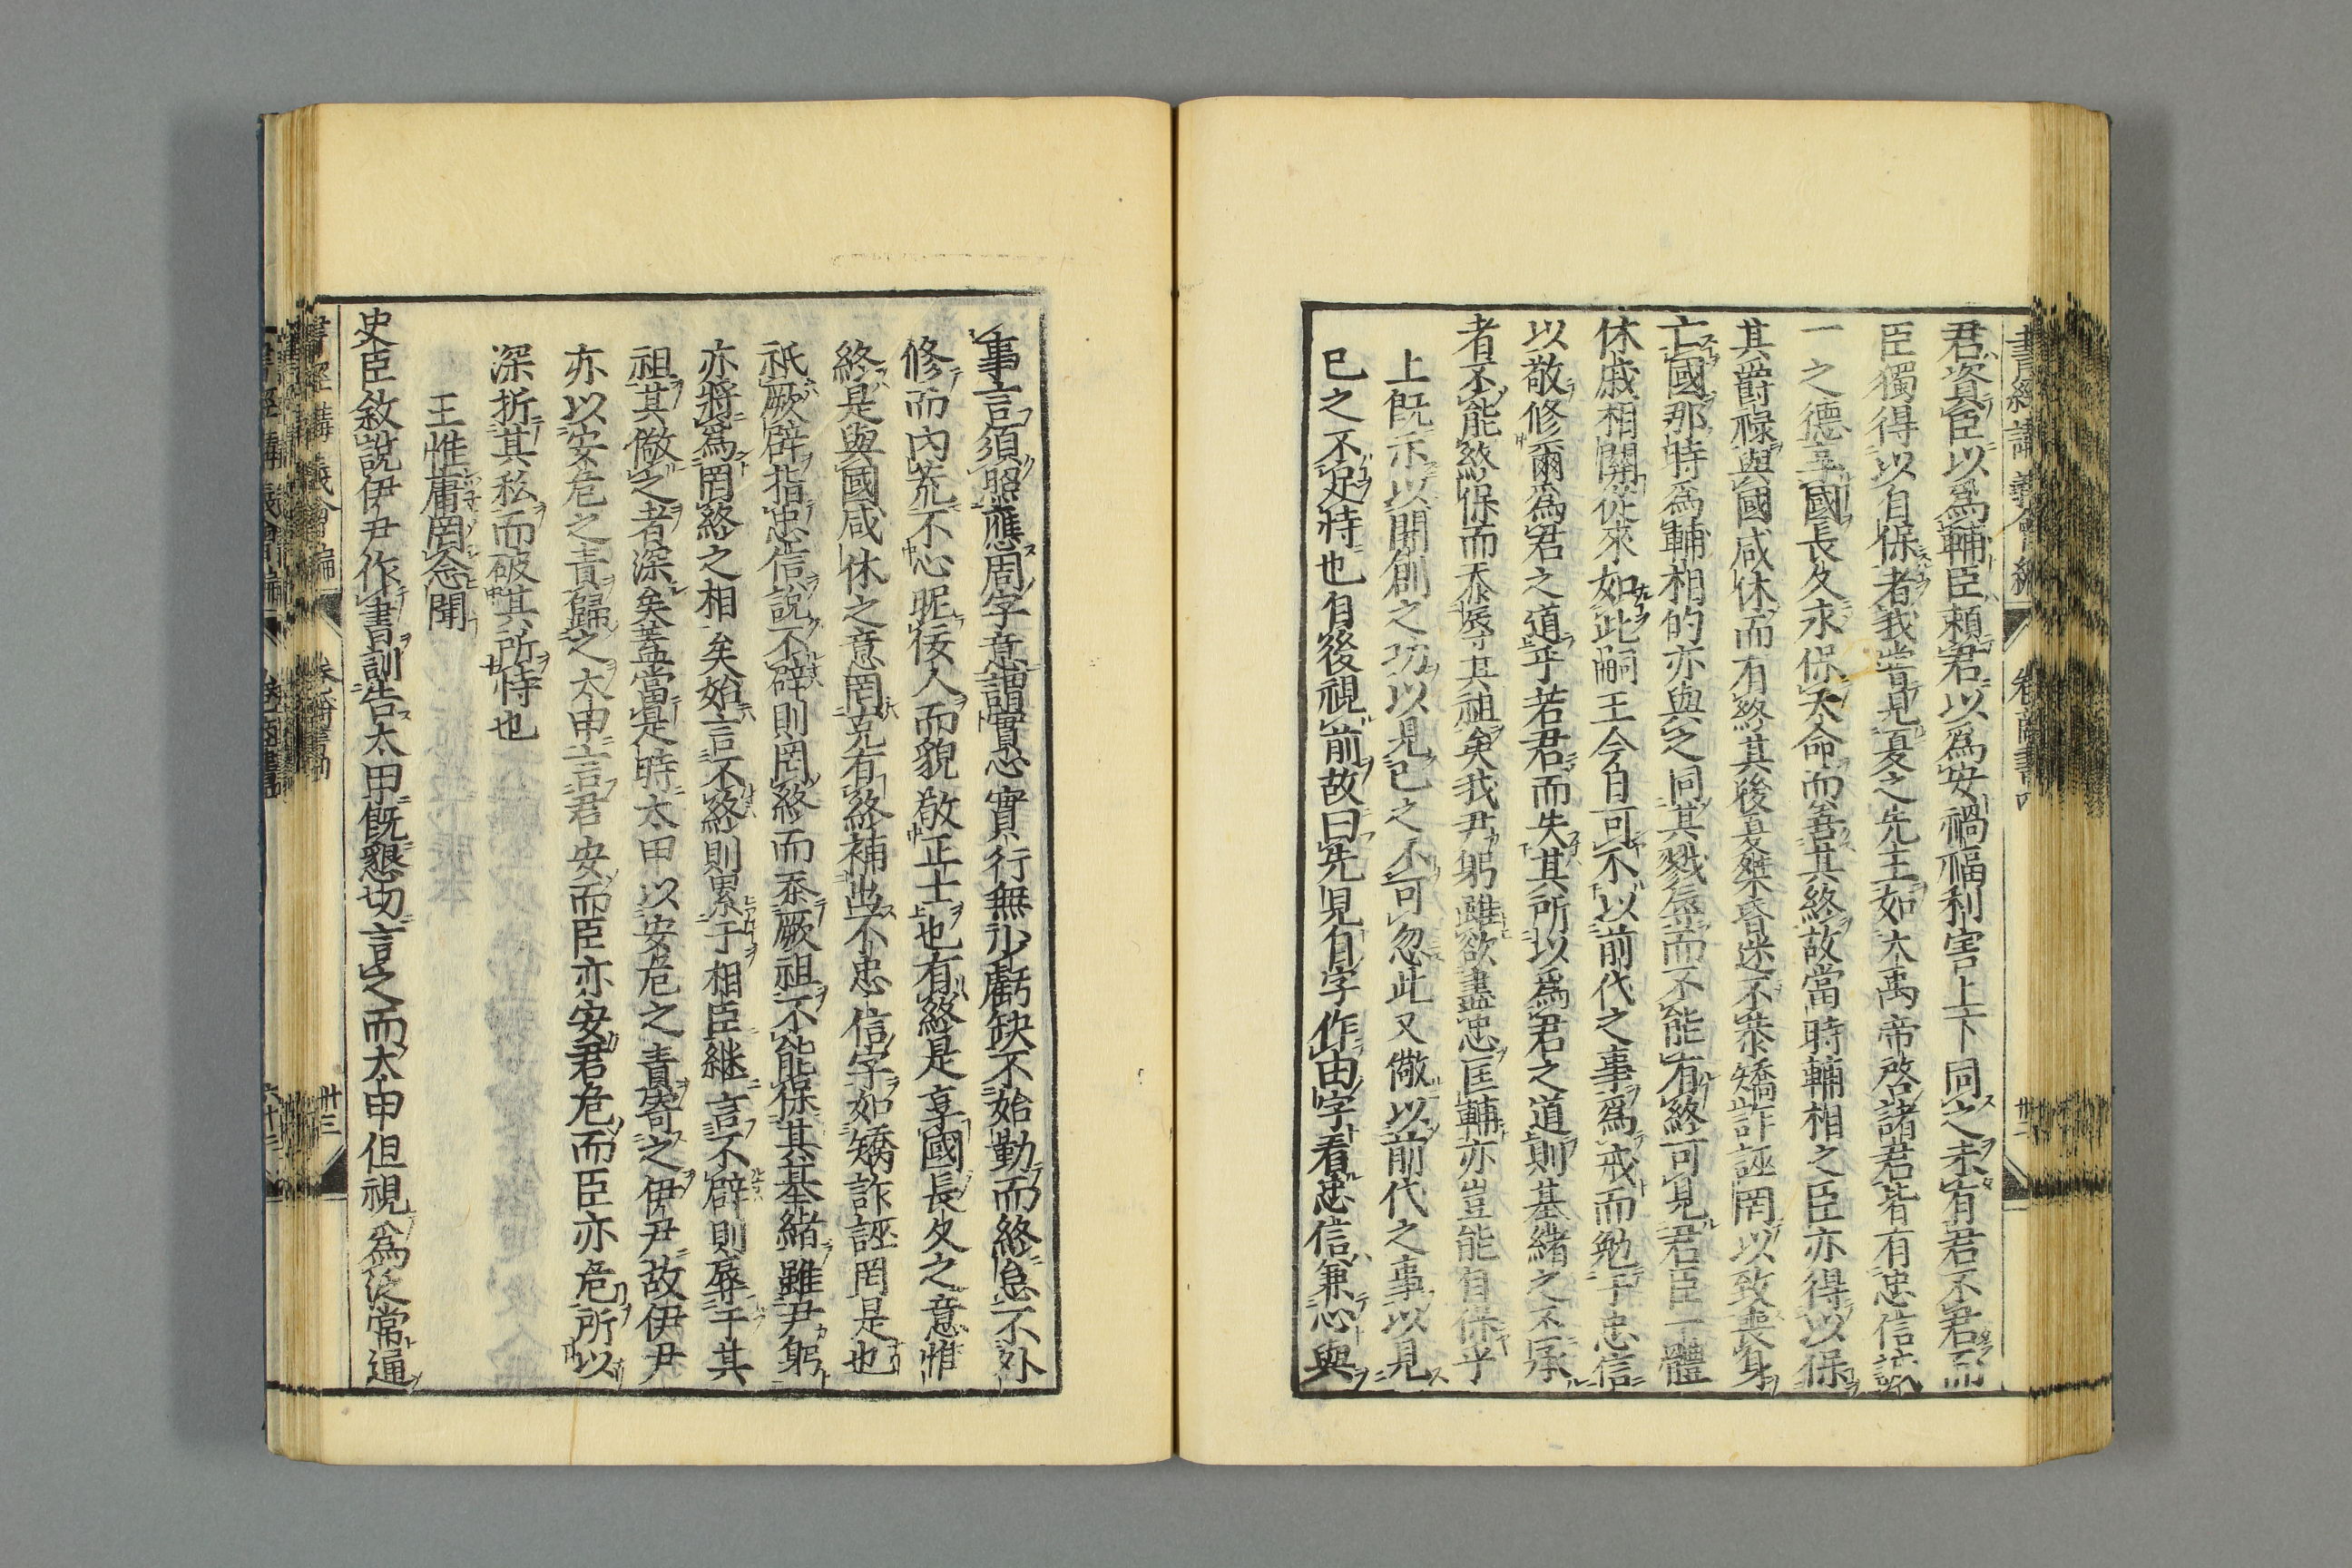 君資臣以爲輔臣頼君以爲安禍福利害上下同之未有君不君而
臣獨得以自保者我嘗見夏之先王如大禹帝啓諸君皆有忠信誠
一之德享國長久永保天命而善其終故當時輔相之臣亦得以保
其爵祿與國咸休而有終其後夏桀昏迷不恭矯詐誣罔以致喪身
亡國那時爲輔相的亦與之同其戮辱而不能有終可見君臣一體
休戚相關從來如此嗣王今日可不以前代之事爲戒而勉于忠信
以敬修爾爲君之道乎若君而失其所以爲君之道則基緒之不承
者不能終保而忝辱其祖矣我尹躬雖欲盡忠匡輔亦豈能自保乎
上既示以開創之功以見已之不可忽此又儆以前代之事以見
已之不足恃也自後視前故曰先見自字作由字看忠信兼心與
事言須照應周字意謂實心實行無少虧缺不始勤而終怠不外
修而內荒不心昵佞人而貌敬正士也有終是享國長久之意惟
終是與國咸休之意罔克有終補出不忠信字如矯詐誣罔是也
祇厥辟指忠信說不辟則罔終而忝厥祖不能保其基緒雖尹躬
亦將爲罔終之相矣始言不終則累于相臣継言不辟則辱于其
祖其儆之者深矣蓋當是時太甲以安危之責寄之伊尹故伊尹
亦以安危之責歸之太甲言君安而臣亦安君危而臣亦危所以
深折其私而破其所恃也
王惟庸罔念聞
史臣敘說伊尹作書訓告太甲既懇切言之而太甲但視爲泛常通
書經講義會編
卅三